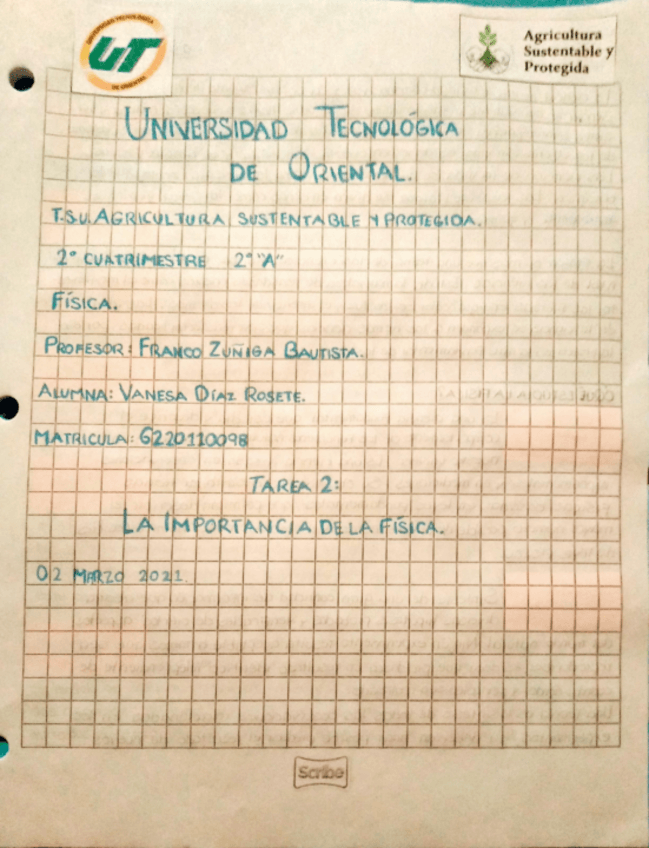 UNIVERSIDAD TECNOLÓGICA
DE ORIENTAL
UT
Agricultura
Sustentable y
Protegida
UNIVERSIDAD TECNOLÓGICA
DE ORIENTAL.
T.S.U. AGRICULTURA SUSTENTABLE Y PROTEGIDA.
2° CUATRIMESTRE 2° "A"
FÍSICA.
PROFESOR: FRANCO ZUÑIGA BAUTISTA.
ALUMNA: VANESA DÍAZ ROSETE.
MATRICULA: 6220110098
TAREA 2:
LA IMPORTANCIA DE LA FÍSICA.
02 MARZO 2021.
Scribe